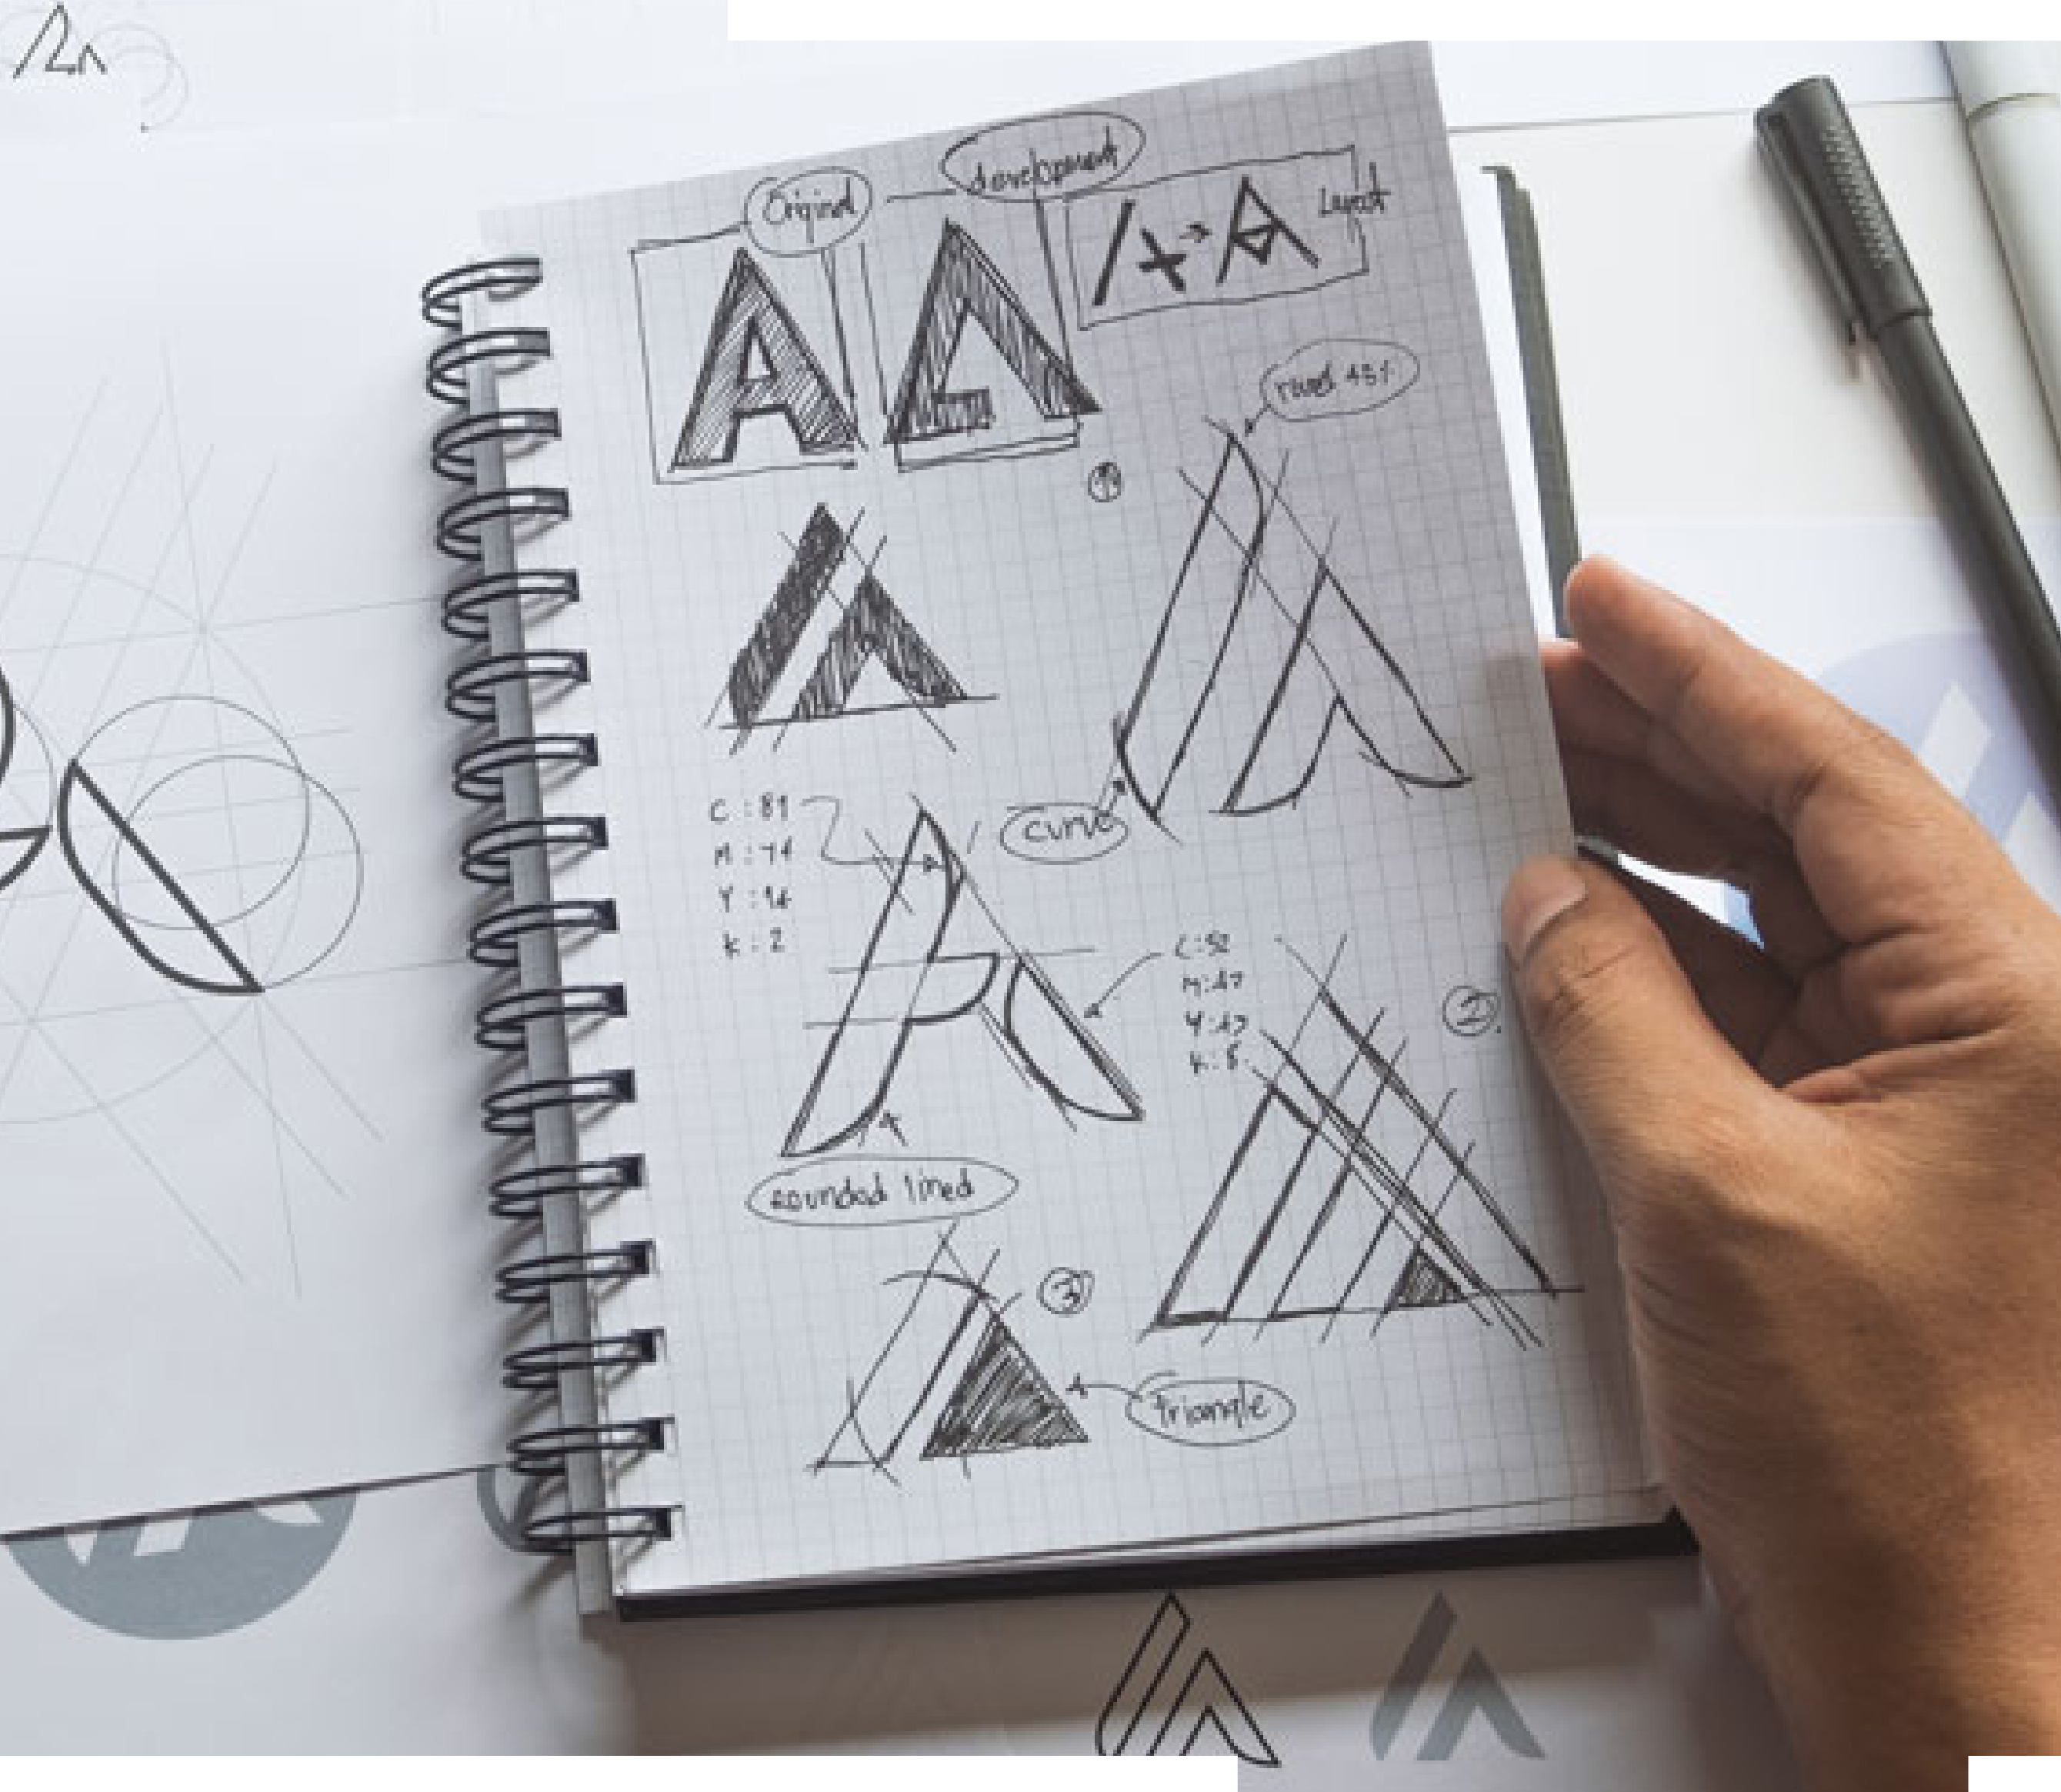 Original
development
A
Layout
1
curve
C:81
M:74
Y:14
K:2
C:52
M:47
Y:47
K:8
2
rounded lined
3
Triangle